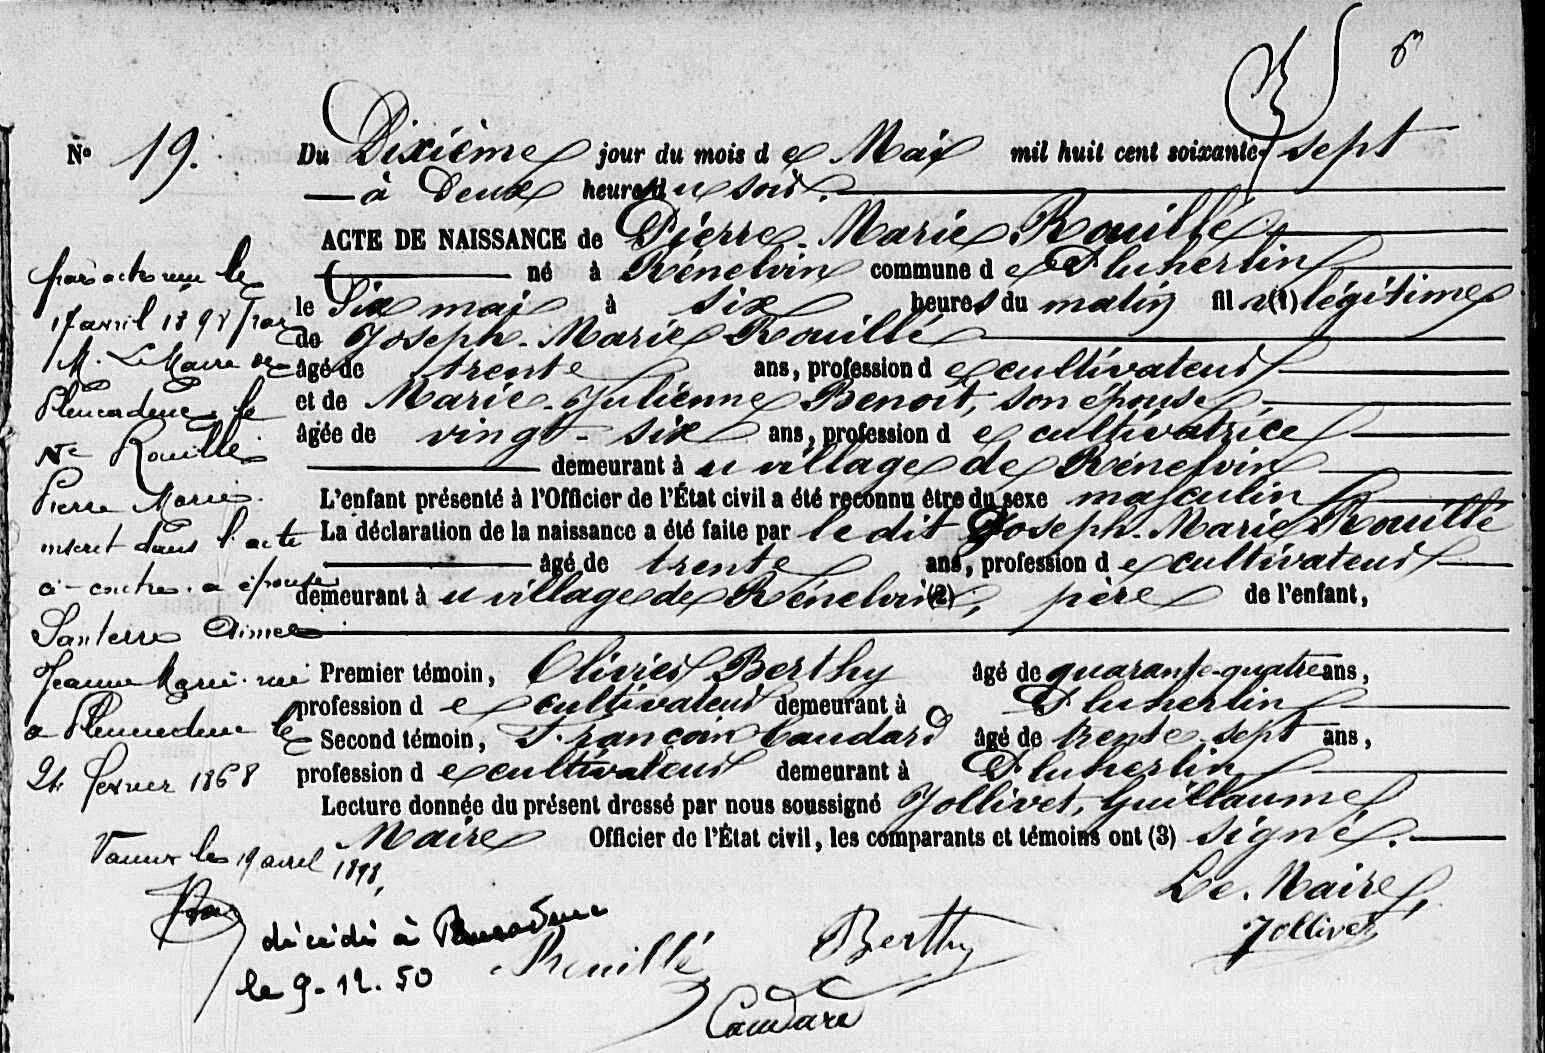 Nº 19.
Du Dixième jour du mois d e Mai mil huit cent soixante sept
à Deux heures du soir.
ACTE DE NAISSANCE de Pierre-Marie Rouillé
né à Rénelvin commune d e Pluherlin
le Six mai à six heures du matin fil s (1) légitime
de Joseph-Marie Rouillé
âgé de trente ans, profession d e cultivateur
et de Marie-Julienne Benoit, son épouse
âgée de vingt-six ans, profession d e cultivatrice
demeurant à u village de Rénelvin
L'enfant présenté à l'Officier de l'État civil a été reconnu être du sexe masculin
La déclaration de la naissance a été faite par le dit Joseph-Marie Rouillé
âgé de trente ans, profession d e cultivateur
demeurant à u village de Rénelvin (2), père de l'enfant,
Premier témoin, Olivier Berthy âgé de quarante-quatre ans,
profession d e cultivateur demeurant à Pluherlin
Second témoin, François Caudard âgé de trente-sept ans,
profession d e cultivateur demeurant à Pluherlin
Lecture donnée du présent dressé par nous soussigné Jollivet, Guillaume
Maire Officier de l'État civil, les comparants et témoins ont (3) signé.
Le Maire,
Jollivet
Rouillé Berthy
Caudard
par acte reçu le
17 avril 1898 par
M. Le Maire de
Pleucadeuc le
Né Rouillé
Pierre Marie
inscrit dans l'acte
ci-contre a épousé
Santerre Aimée
Jeanne Marie née
a Pleucadeuc le
24 février 1868
Vannes le 19 avril 1898,
décédé à Pleucadeuc
le 9-12.50